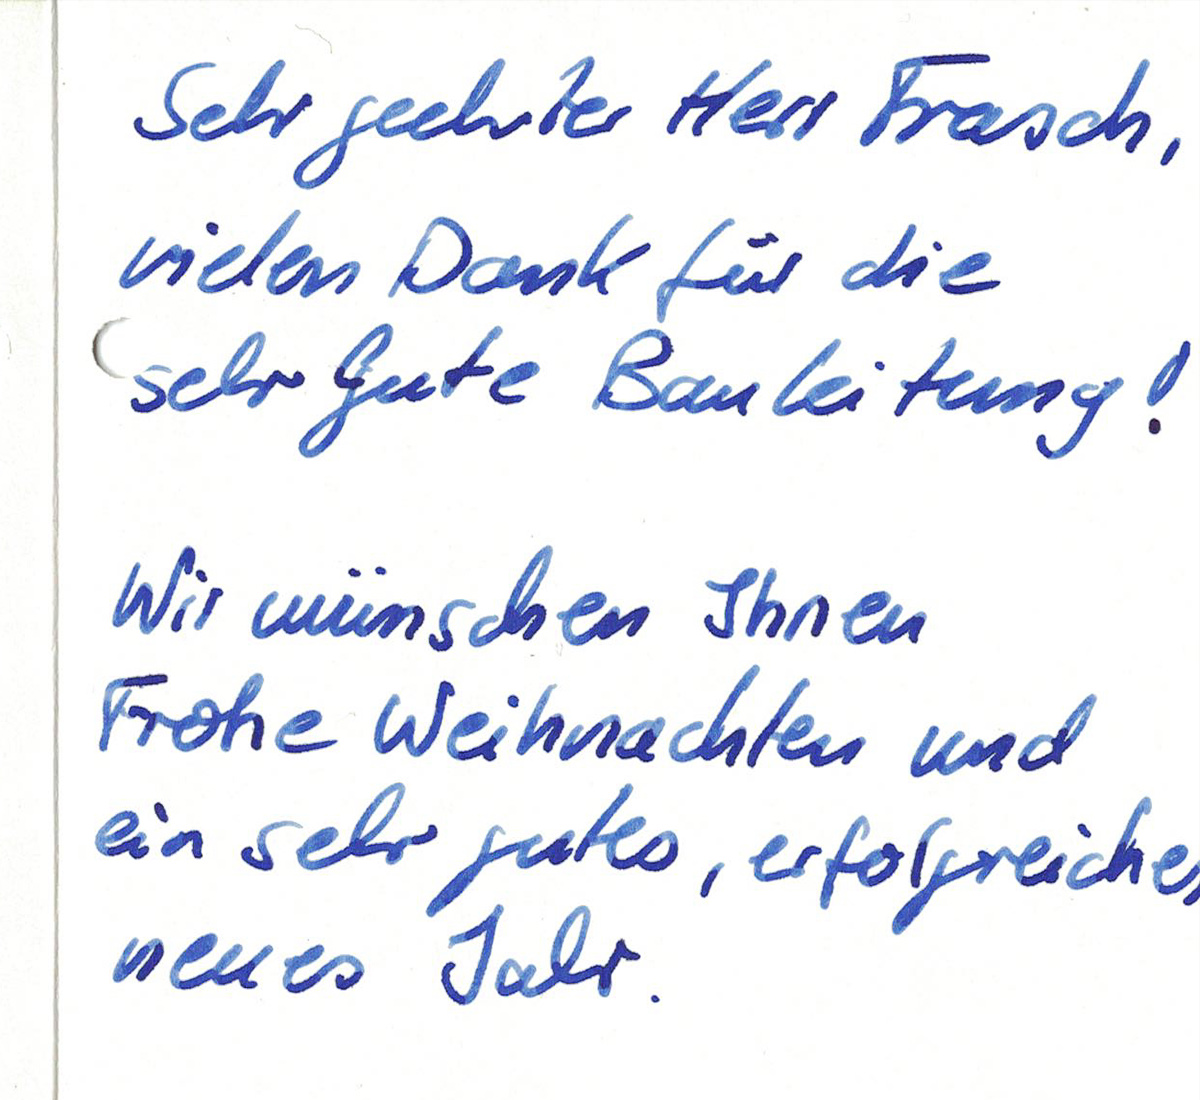 Sehr geehrter Herr Frasch,
vielen Dank für die
sehr gute Bauleitung!
Wir wünschen Ihnen
Frohe Weihnachten und
ein sehr gutes, erfolgreiches
neues Jahr.